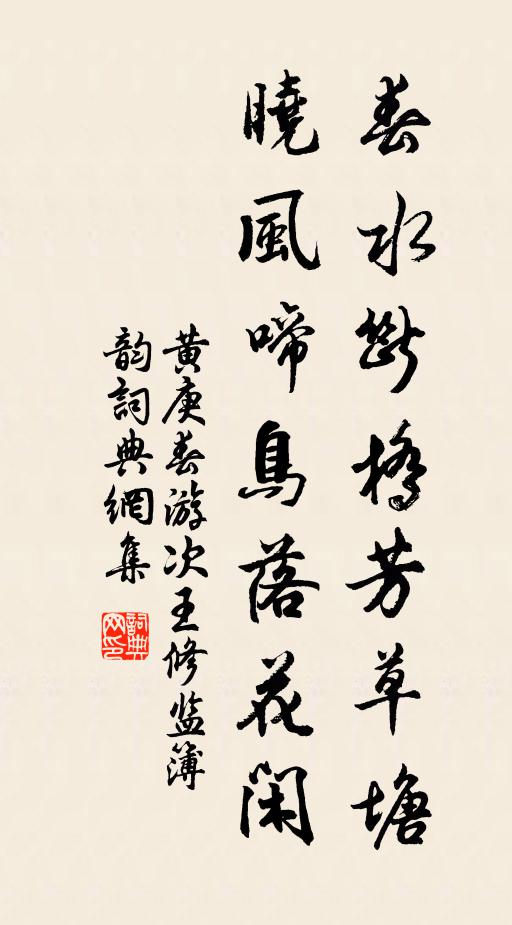 春水斷橋芳草塘
曉風啼鳥落花閑
黄庚春游次王修监簿
韵詞典網集
詞典网印